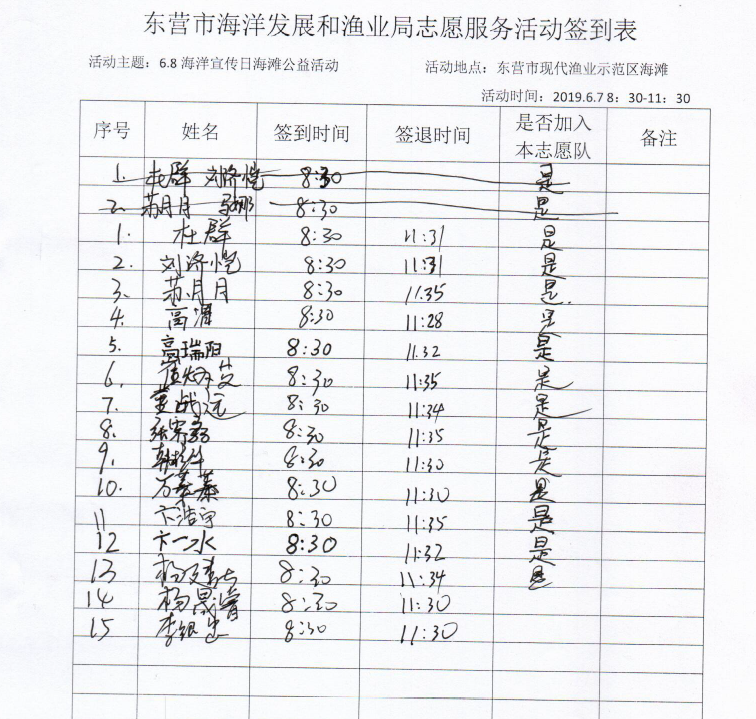 东营市海洋发展和渔业局志愿服务活动签到表
活动主题：6.8 海洋宣传日海滩公益活动 活动地点：东营市现代渔业示范区海滩
活动时间：2019.6.7 8：30-11：30
序号 姓名 签到时间 签退时间 是否加入本志愿队 备注
1. 杜群 刘济恺 8:30 是
2. 苏月月 8:30 是
1. 杜群 8:30 11:31 是
2. 刘济恺 8:30 11:31 是
3. 苏月月 8:30 11:35 是.
4. 高渭 8:30 11:28 是
5. 高瑞阳 8:30 11:32 是
6. 8:30 11:35 是
7. 董战远 8:30 11:34 是
8. 8:30 11:35 是
9. 8:30 11:30 是
10. 8:30 11:30 是
11 卞浩宇 8:30 11:35 是
12 卞一水 8:30 11:32 是
13 8:30 11:34 是
14 杨晟睿 8:30 11:30
15 李银忠 8:30 11:30